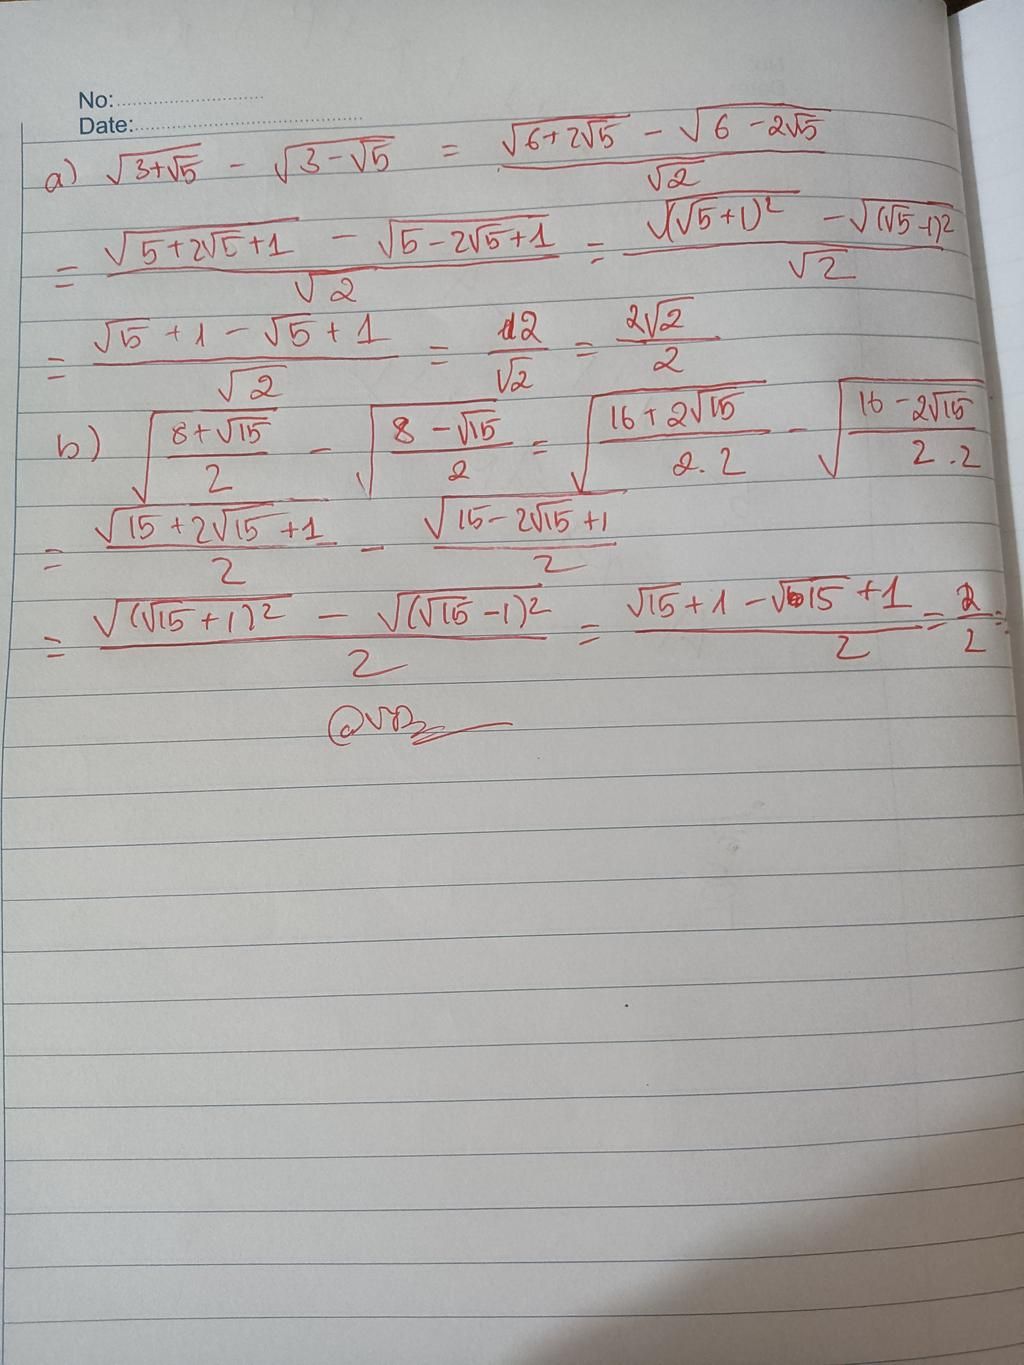 No:
Date:
a) √(3+√5) - √(3-√5) = (√(6+2√5) - √(6-2√5))/√2
= (√(5+2√5+1) - √(5-2√5+1))/√2 = (√(√5+1)² - √(√5-1)²)/√2
= (√5+1-√5+1)/√2 = 2/√2 = 2√2/2
b) √((8+√15)/2) - √((8-√15)/2) = √((16+2√15)/(2.2)) - √((16-2√15)/(2.2))
= √(15+2√15+1)/2 - √(15-2√15+1)/2
= (√(√15+1)² - √(√15-1)²)/2 = (√15+1-√15+1)/2 = 2/2 =